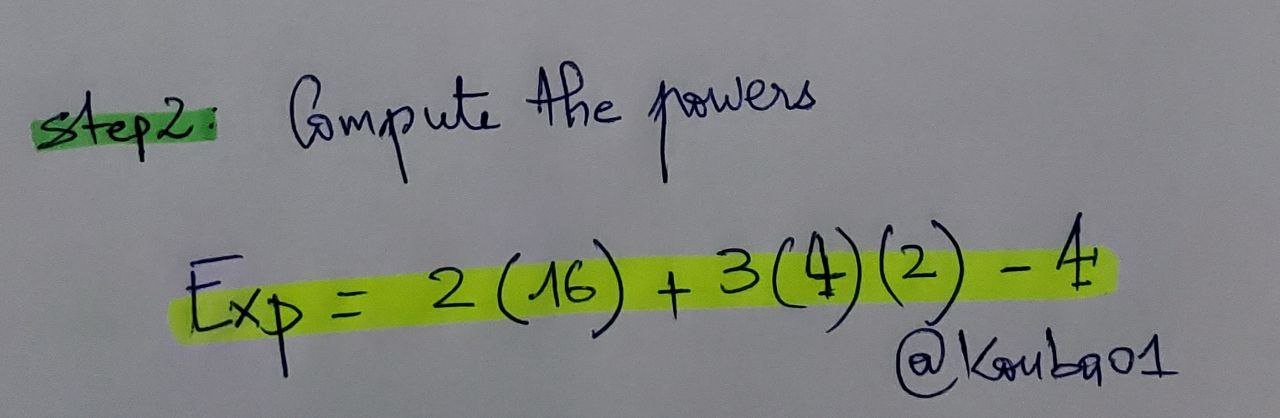 step2: Compute the powers
Exp = 2(16) + 3(4)(2) - 4
@Kouba01